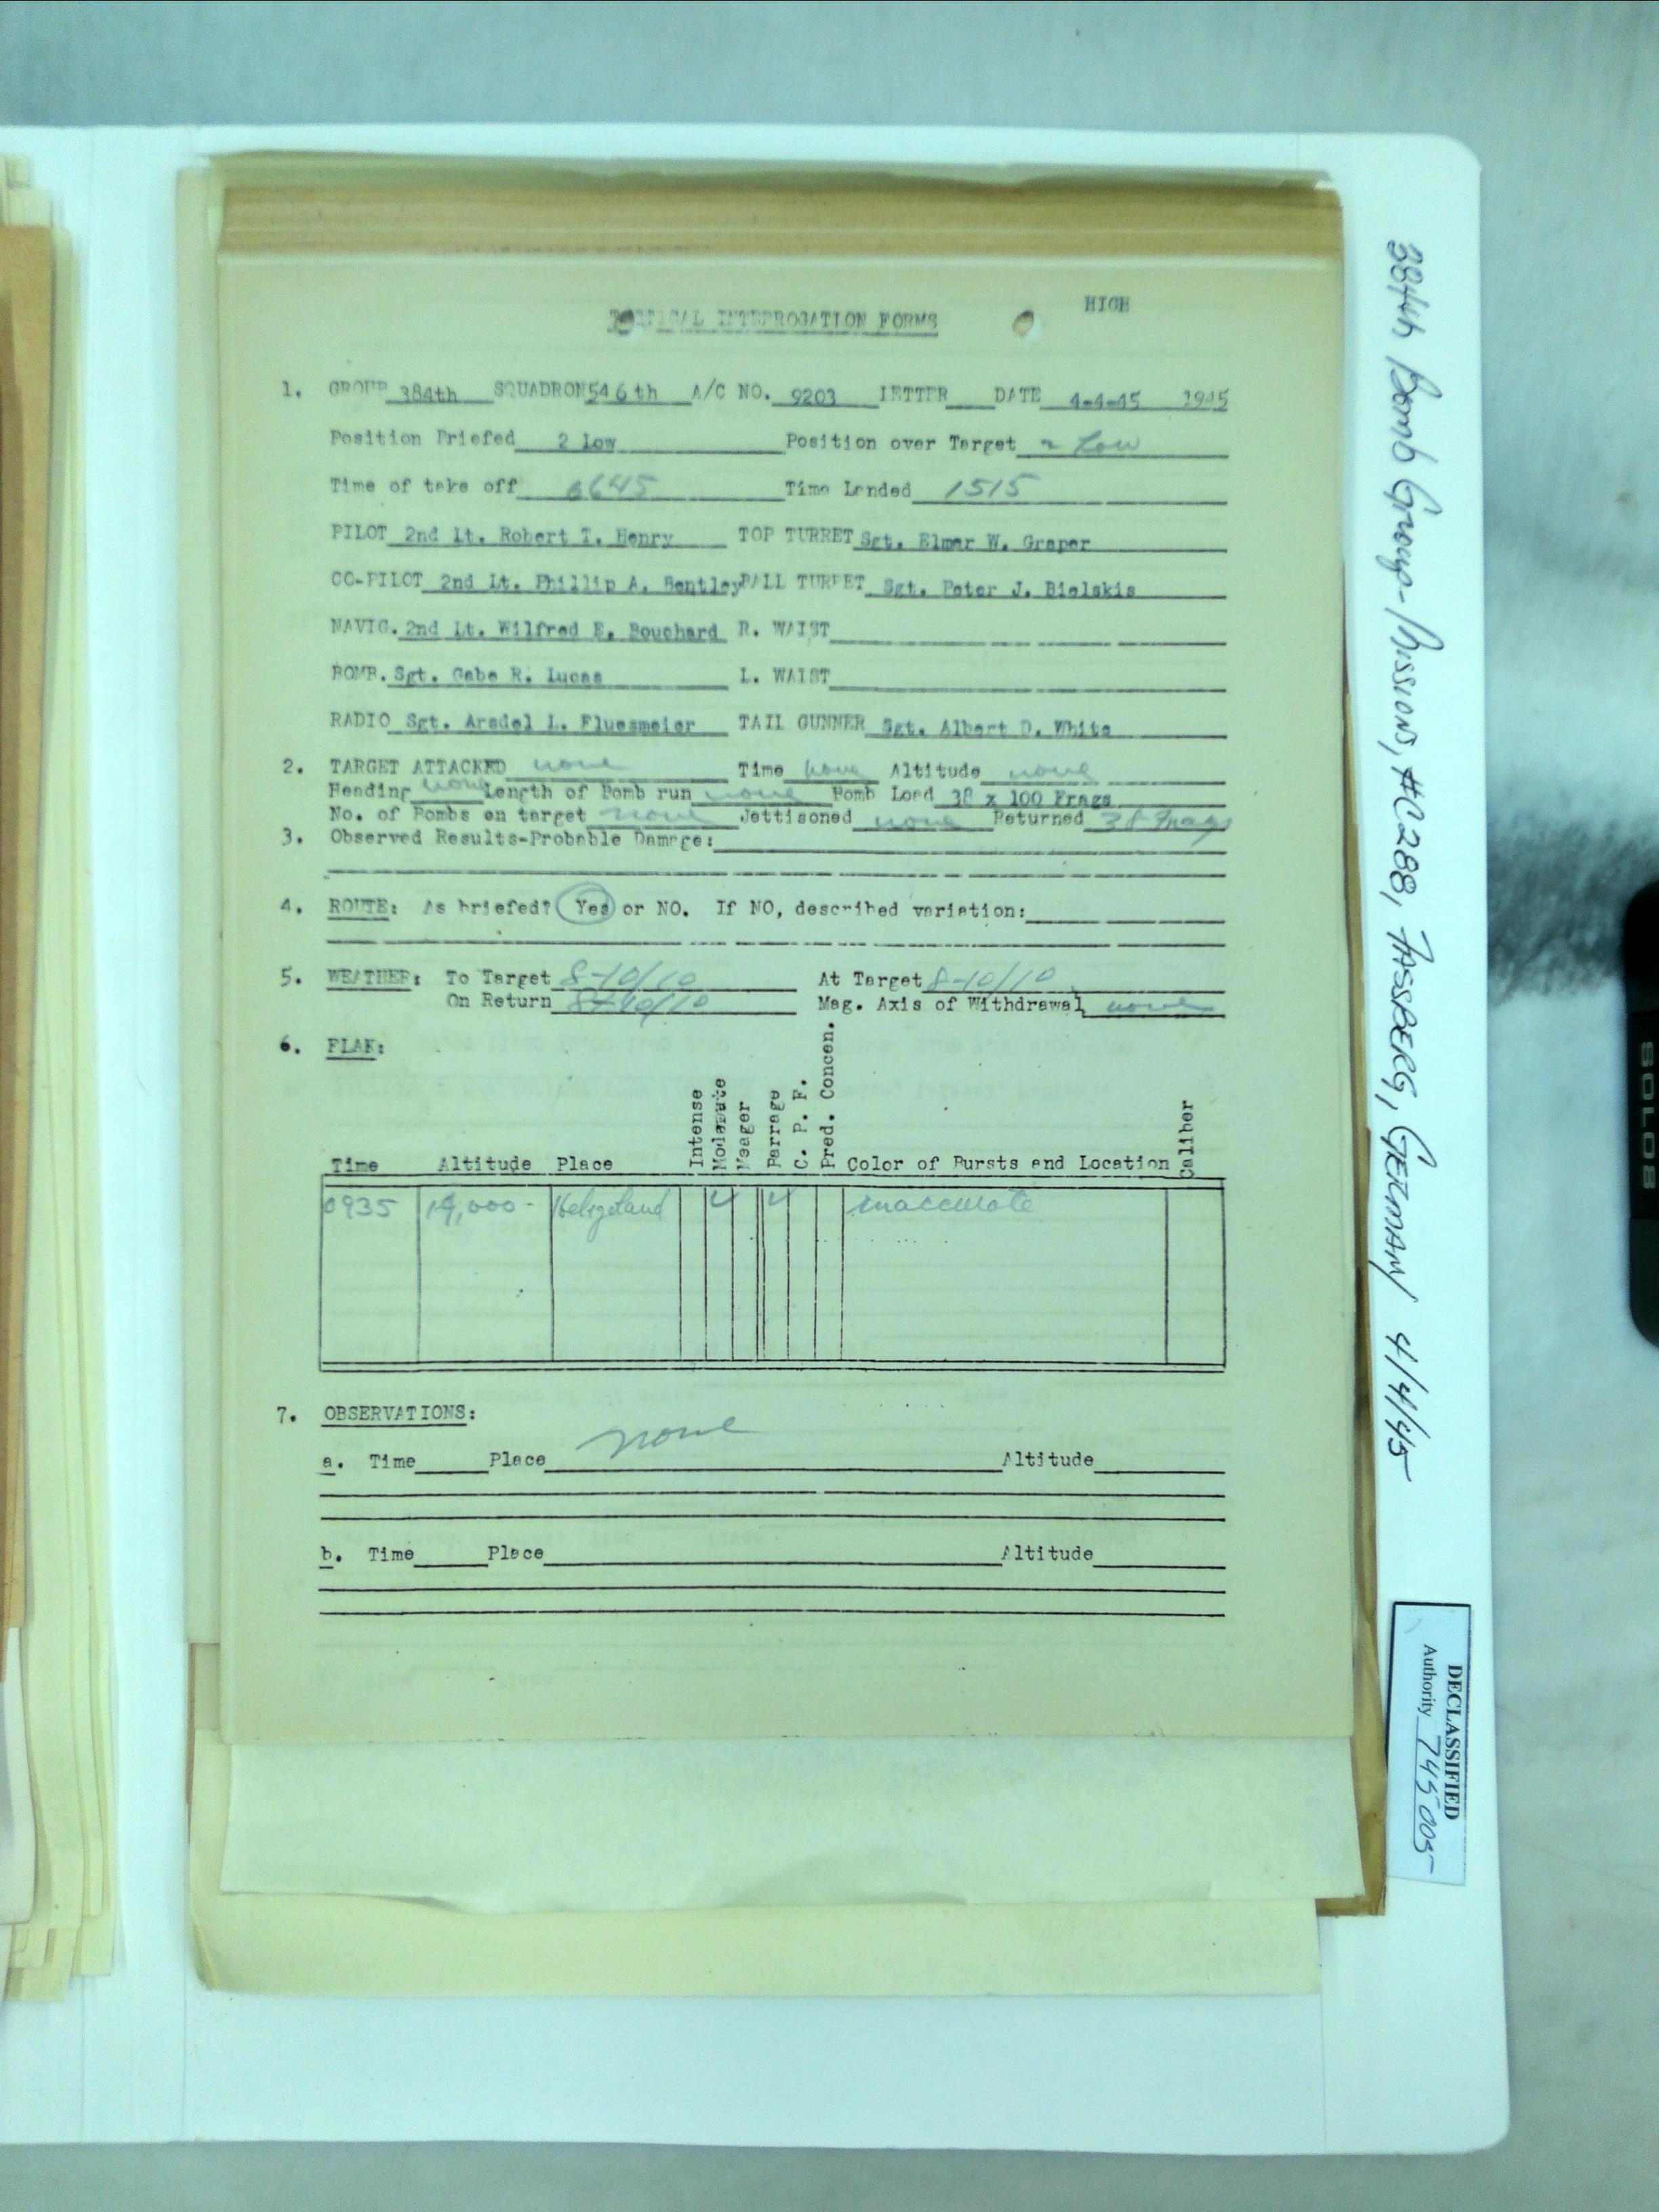 HIGH
TACTICAL INTERROGATION FORMS
1. GROUP 384th SQUADRON 546th A/C NO. 9203 LETTER DATE 4-4-45 1945
Position Briefed 2 low Position over Target 2 Low
Time of take off 0645 Time Landed 1515
PILOT 2nd Lt. Robert T. Henry TOP TURRET Sgt. Elmer W. Graper
CO-PILOT 2nd Lt. Phillip A. Bentley BALL TURRET Sgt. Peter J. Bielskis
NAVIG. 2nd Lt. Wilfred E. Bouchard R. WAIST
BOMB. Sgt. Gabe R. Lucas L. WAIST
RADIO Sgt. Arsdel L. Fluesmeier TAIL GUNNER Sgt. Albert D. White
2. TARGET ATTACKED none Time none Altitude none
Heading none Length of Bomb run none Bomb Load 38 x 100 Frags
No. of Bombs on target none Jettisoned none Returned 38 Frags
3. Observed Results-Probable Damage:
4. ROUTE: As briefed? Yes or NO. If NO, described variation:
5. WEATHER: To Target 8-10/10 At Target 8-10/10
On Return 8-10/10 Mag. Axis of Withdrawal none
6. FLAK:
Time Altitude Place Intense Moderate Meager Barrage C. P. F. Pred. Concen. Color of Bursts and Location Caliber
0935 19,000- Heligoland ✓ ✓ inaccurate
7. OBSERVATIONS:
none
a. Time Place Altitude
b. Time Place Altitude
384th Bomb Group-Missions, #C288, FASSBERG, GERMANY 4/4/45
DECLASSIFIED
Authority 745005
SOLOS